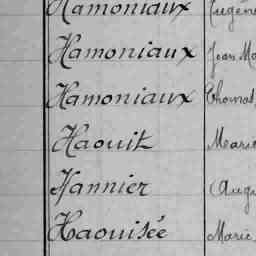 Hamoniaux Eugène
Hamoniaux Jean Ma
Hamoniaux Thomas
Haouit Marie
Hannier Augu
Haouisée Marie